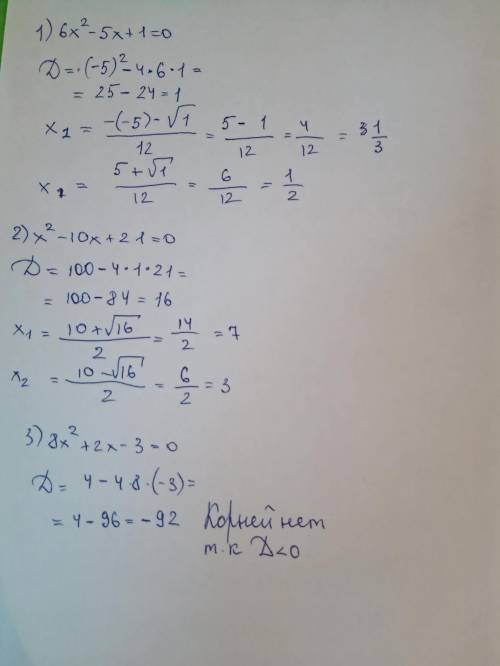 1) 6x² - 5x + 1 = 0
D = (-5)² - 4 • 6 • 1 =
= 25 - 24 = 1
x₁ = (-(-5) - √1)/12 = (5 - 1)/12 = 4/12 = 3 1/3
x₂ = (5 + √1)/12 = 6/12 = 1/2
2) x² - 10x + 21 = 0
D = 100 - 4 • 1 • 21 =
= 100 - 84 = 16
x₁ = (10 + √16)/2 = 14/2 = 7
x₂ = (10 - √16)/2 = 6/2 = 3
3) 8x² + 2x - 3 = 0
D = 4 - 4 8 • (-3) =
= 4 - 96 = -92 Корней нет
т.к D < 0